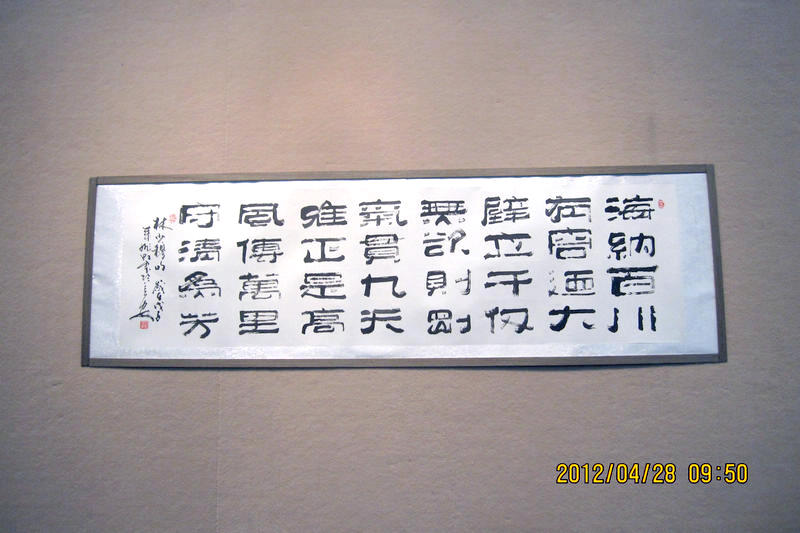 海納百川
有容迺大
壁立千仞
無欲則剛
氣貫九天
唯正是高
風傳萬里
守清為芳
林少穆句
2012/04/28 09:50